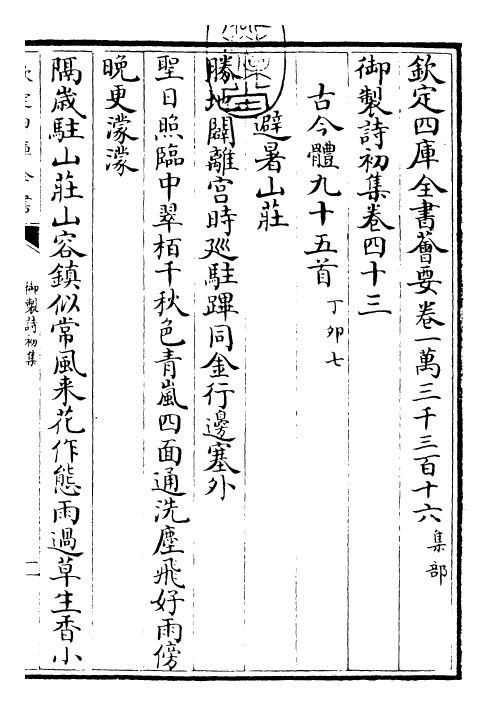 欽定四庫全書薈要卷一萬三千三百十六集部
御製詩初集卷四十三
古今體九十五首丁卯七
避暑山莊
勝地闢離宮時廵駐蹕同金行邊塞外
聖日照臨中翠栢千秋色青嵐四面通洗塵飛好雨傍
晚更濛濛
隔歲駐山莊山容鎮似常風来花作態雨過草生香小
御製詩初集